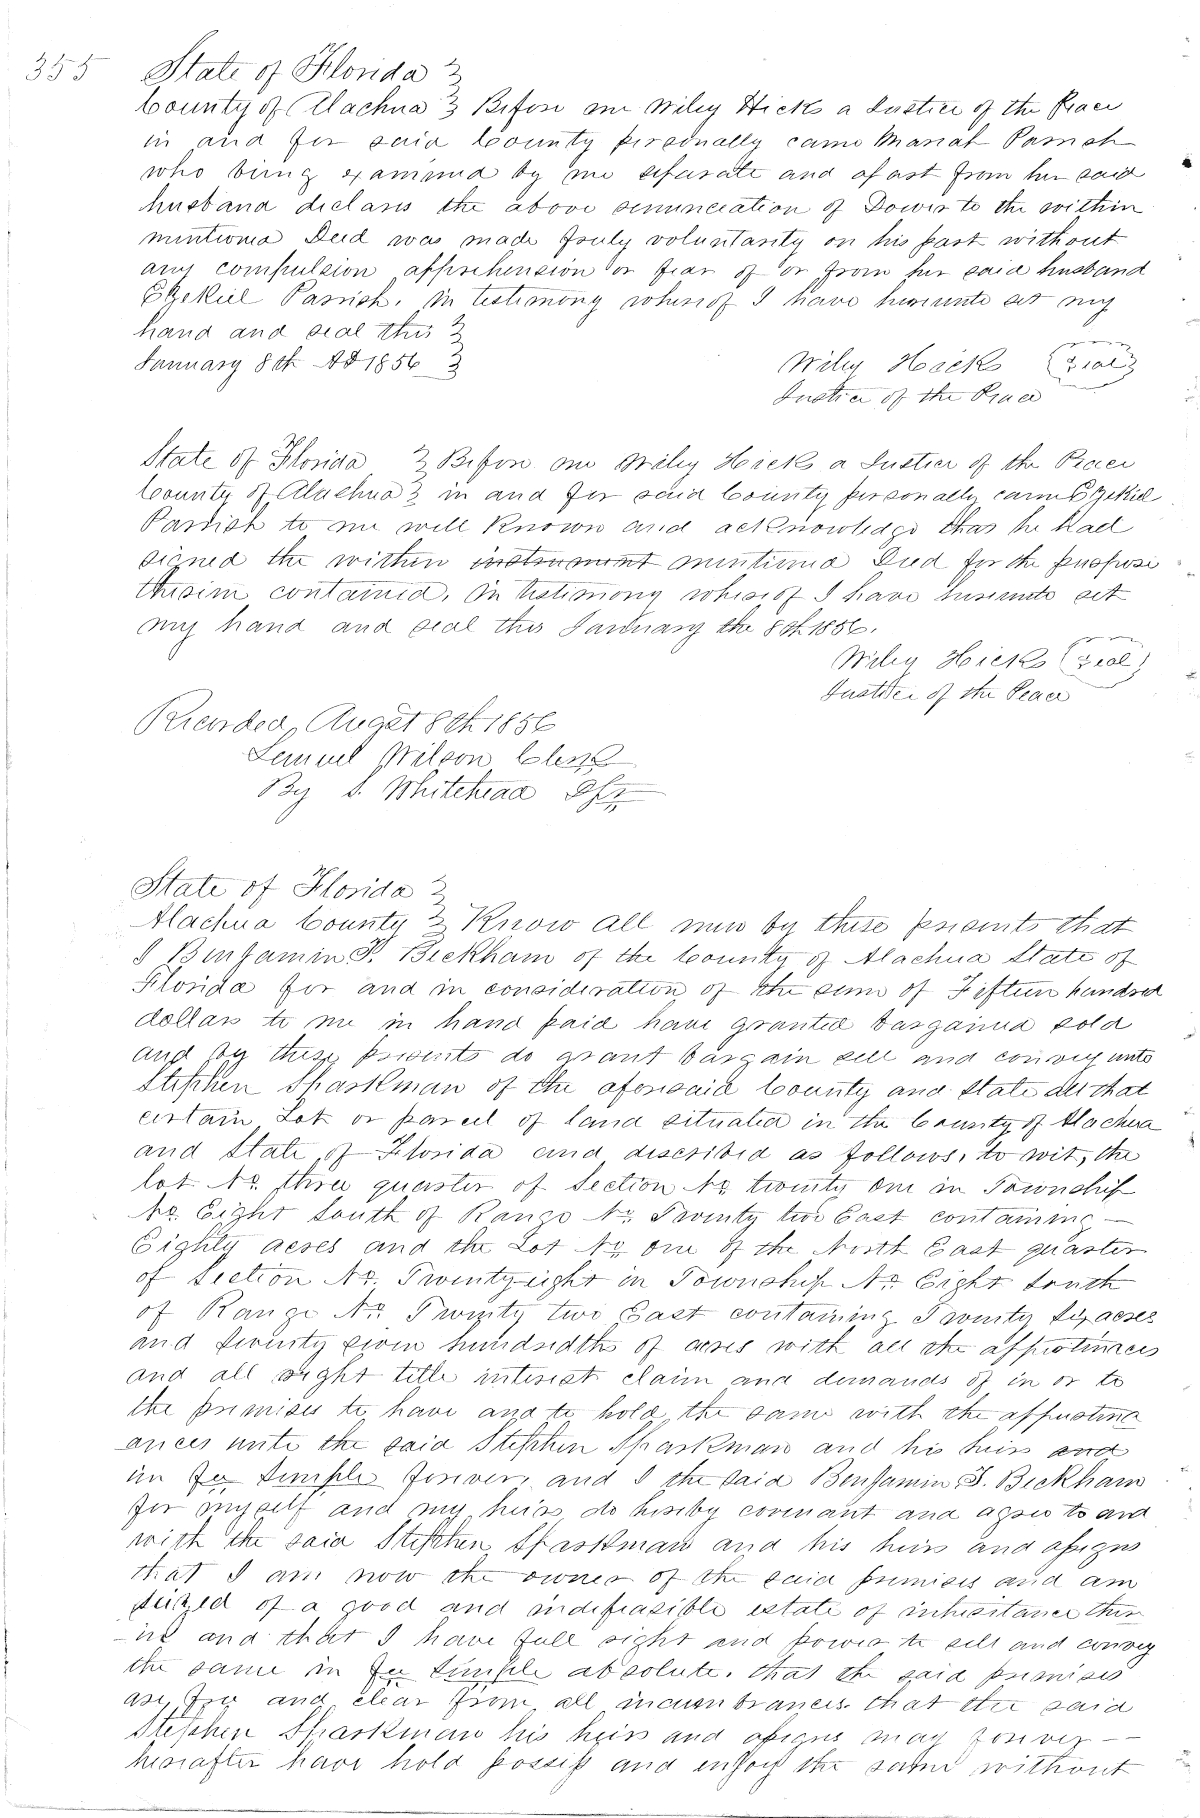 355
State of Florida }
County of Alachua } Before me Wiley Hicks a Justice of the Peace
in and for said County personally came Mariah Parrish
who being examined by me separate and apart from her said
husband declares the above renunciation of Dower to the within
mentioned Deed was made freely voluntarity on his part without
any compulsion apprehension or fear of or from her said husband
Ezekiel Parrish. in testimony whereof I have hereunto set my
hand and seal this }
January 8th AD 1856 }
Wiley Hicks (seal)
Justice of the Peace
State of Florida } Before me Wiley Hicks a Justice of the Peace
County of Alachua } in and for said County personally came Ezekiel
Parrish to me well known and acknowledge that he had
signed the within instrument mentioned Deed for the purpose
therein contained. In testimony whereof I have hereunto set
my hand and seal this January the 8th 1856.
Wiley Hicks (seal)
Justice of the Peace
Recorded, Augst 8th 1856
Lemuel Wilson Clerk
By S. Whitehead
State of Florida }
Alachua County } Know all men by these presents that
I Benjamin J. Beckham of the County of Alachua State of
Florida for and in consideration of the sum of Fifteen hundred
dollars to me in hand paid have granted bargained sold
and by these presents do grant bargain sell and convey unto
Stephen Sparkman of the aforesaid County and State all that
certain Lot or parcel of land situated in the County of Alachua
and State of Florida and described as follows, to wit, the
lot No three quarter of Section No twenty one in Township
No. Eight South of Range No. Twenty two East containing —
Eighty acres and the Lot No one of the North East quarter
of Section No. Twenty eight in Township No. Eight South
of Range No. Twenty two East containing Twenty six acres
and seventy seven hundredths of acres with all the appertinces
and all right title interest claim and demands of in or to
the premises to have and to hold the same with the appurtena
ances unto the said Stephen Sparkman and his heirs and
in fee simple forever, and I the said Benjamin J. Beckham
for myself and my heirs do hereby covenant and agree to and
with the said Stephen Sparkman and his heirs and assigns
that I am now the owner of the said premises and am
seized of a good and indefeasible estate of inheritance there
-in and that I have full right and power to sell and convey
the same in fee simple absolute. that the said premises
are free and clear from all incumbrances. that the said
Stephen Sparkman his heirs and assigns may forever —
hereafter have hold possess and enjoy the same without